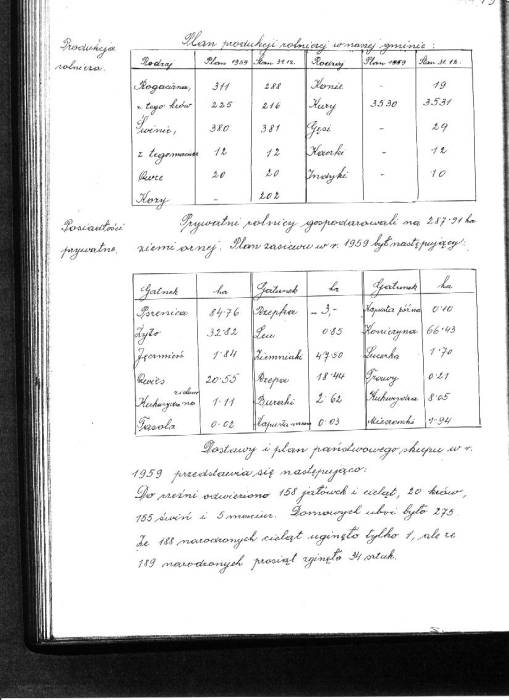 Plan produkcji rolniczej w naszej gminie:
Produkcja
rolnicza.
Rodzaj Plan 1959 Stan 31.12. Rodzaj Plan 1959 Stan 31.12.
Rogacizna, 311 288 Konie 19
z tego krów 225 216 Kury 3530 3531
Świnie, 380 381 Gęsi - 29
z tego macior 12 12 Kaczki - 12
Owce 20 20 Indyki - 10
Kozy - 202
Posiadłości
prywatne.
Prywatni rolnicy gospodarowali na 287.91 ha
ziemi ornej. Plan zasiewu w r. 1959 był następujący:
Gatunek ha Gatunek ha Gatunek ha
Pszenica 84.76 Rzepka - 3,- Kapusta późna 0.10
Żyto 32.82 Len 0.85 Koniczyna 66.43
Jęczmień 1.84 Ziemniaki 47.50 Lucerka 1.70
Owies 20.55 Rzepa 18.44 Trawy 0.21
Kukurydza na 1.11 Buraki 2.62 Kukurydza 8.05
Fasola 0.02 Kapusta 0.03 Mieszanki 1.94
Dostawy i plan państwowego skupu w r.
1959 przedstawia się następująco:
Do rzeźni odwieziono 158 jałówek i cieląt, 20 krów,
155 świń i 5 macior. Domowych uboi było 275.
Ze 188 narodzonych cieląt uginęło tylko 1, ale ze
189 narodzonych prosiąt zginęło 34 sztuk.